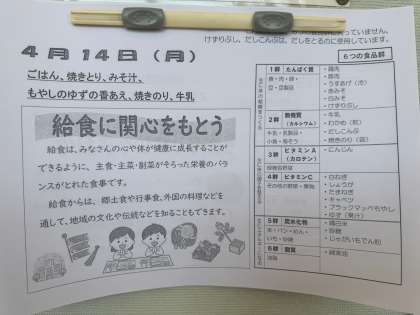 けずりぶし、だしこんぶは、だしをとるのに使用しています。
4月14日(月)
ごはん、焼きとり、みそ汁、
もやしのゆずの香あえ、焼きのり、牛乳
給食に関心をもとう
給食は、みなさんの心や体が健康に成長することが
できるように、主食・主菜・副菜がそろった栄養のバラ
ンスがとれた食事です。
給食からは、郷土食や行事食、外国の料理などを
通して、地域の文化や伝統などを知ることもできます。
6つの食品群
1群 たんぱく質
魚・肉・卵・
豆・豆製品
・鶏肉
・豚肉
・うすあげ(冷)
・赤みそ
・白みそ
・けずりぶし
2群 無機質
(カルシウム)
牛乳・乳製品・
小魚・海そう
・牛乳
・わかめ(乾)
・だしこんぶ
・焼きのり(袋)
3群 ビタミンA
(カロテン)
緑黄色野菜
・にんじん
4群 ビタミンC
その他の野菜・果物
・白ねぎ
・しょうが
・たまねぎ
・キャベツ
・ブラックマッペもやし
・ゆず(果汁)
5群 炭水化物
米・パン・めん・
いも・砂糖
・精白米
・砂糖
・じゃがいもでん粉
6群 脂質
油脂
・綿実油